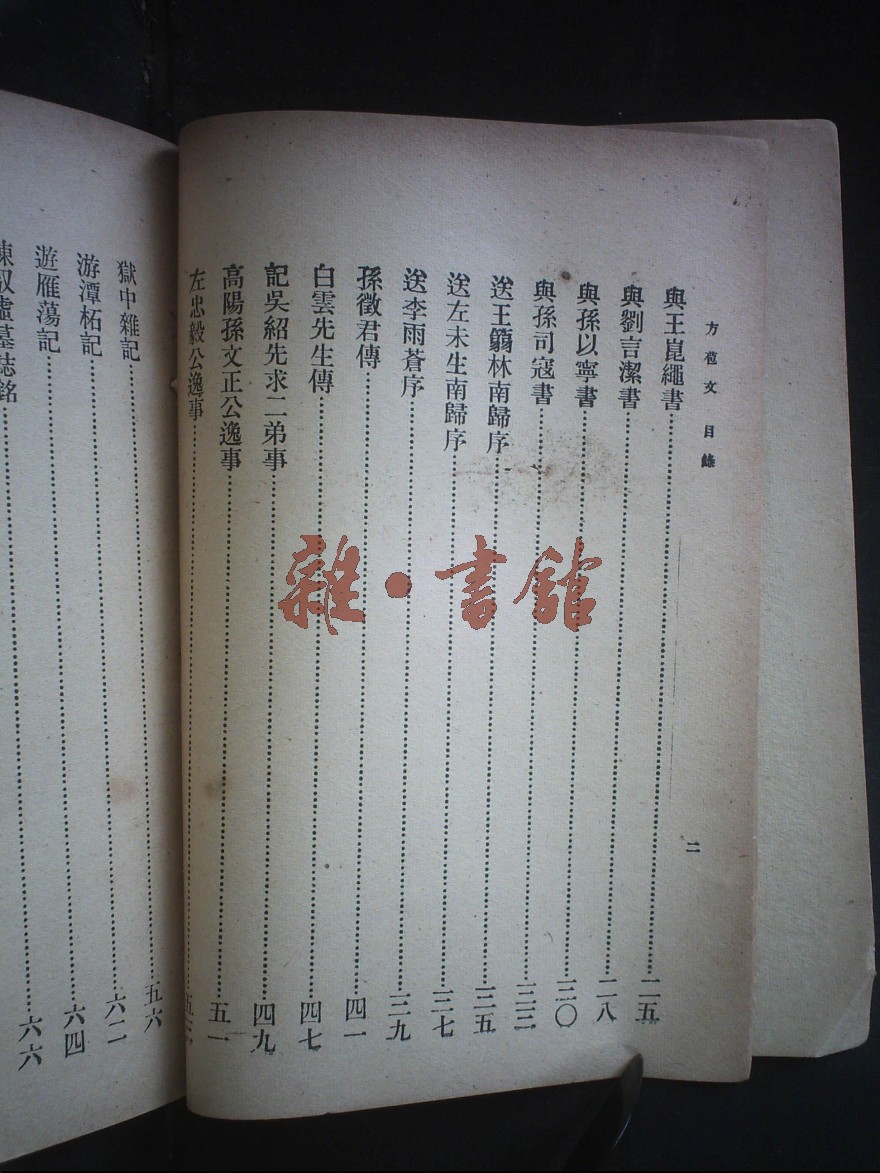 方苞文目錄
二
與王崑繩書……二五
與劉言潔書……二八
與孫以寧書……三〇
與孫司寇書……三三
送王篛林南歸序……三五
送左未生南歸序……三七
送李雨蒼序……三九
孫徵君傳……四一
白雲先生傳……四七
記吳紹先求二弟事……四九
高陽孫文正公逸事……五一
左忠毅公逸事……五
獄中雜記……五六
游潭柘記……六二
遊雁蕩記……六四
陳馭虛墓誌銘……六六
雜·書館